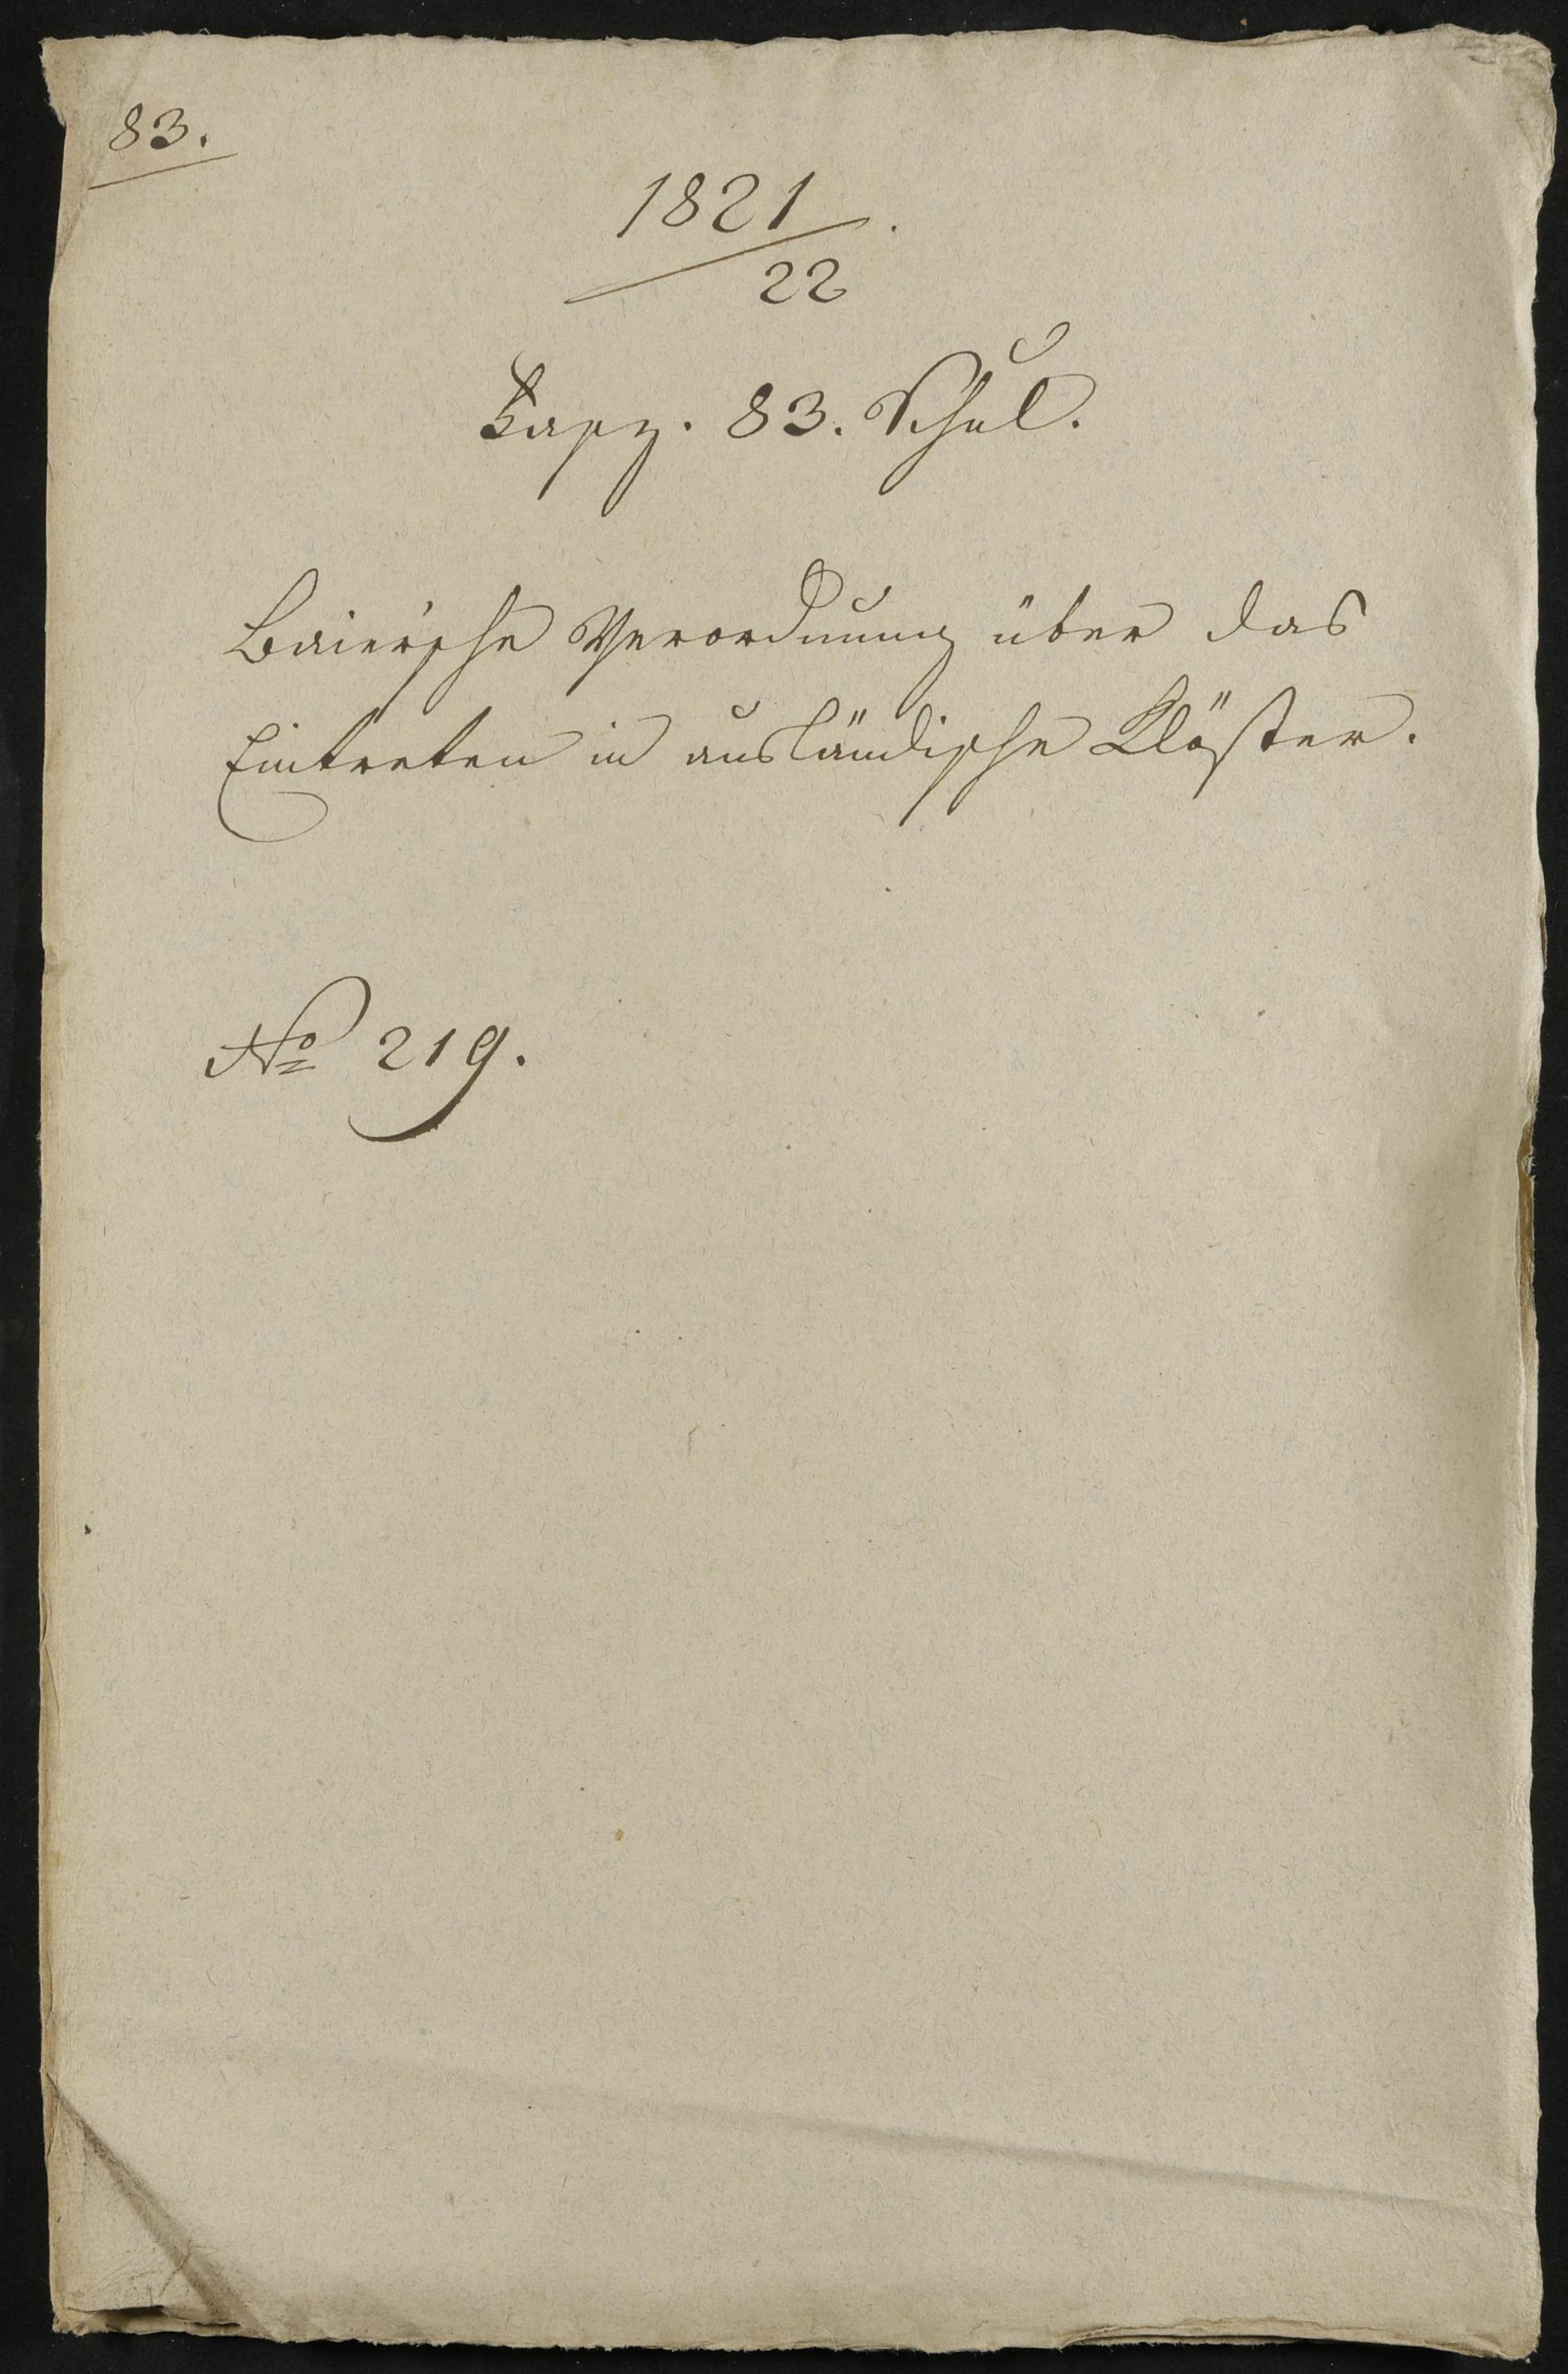 83.
1821/22.
Fasz. 83. Schul.
Baier'sche Verordnung über das
Eintreten in ausländische Klöster.
No 219.